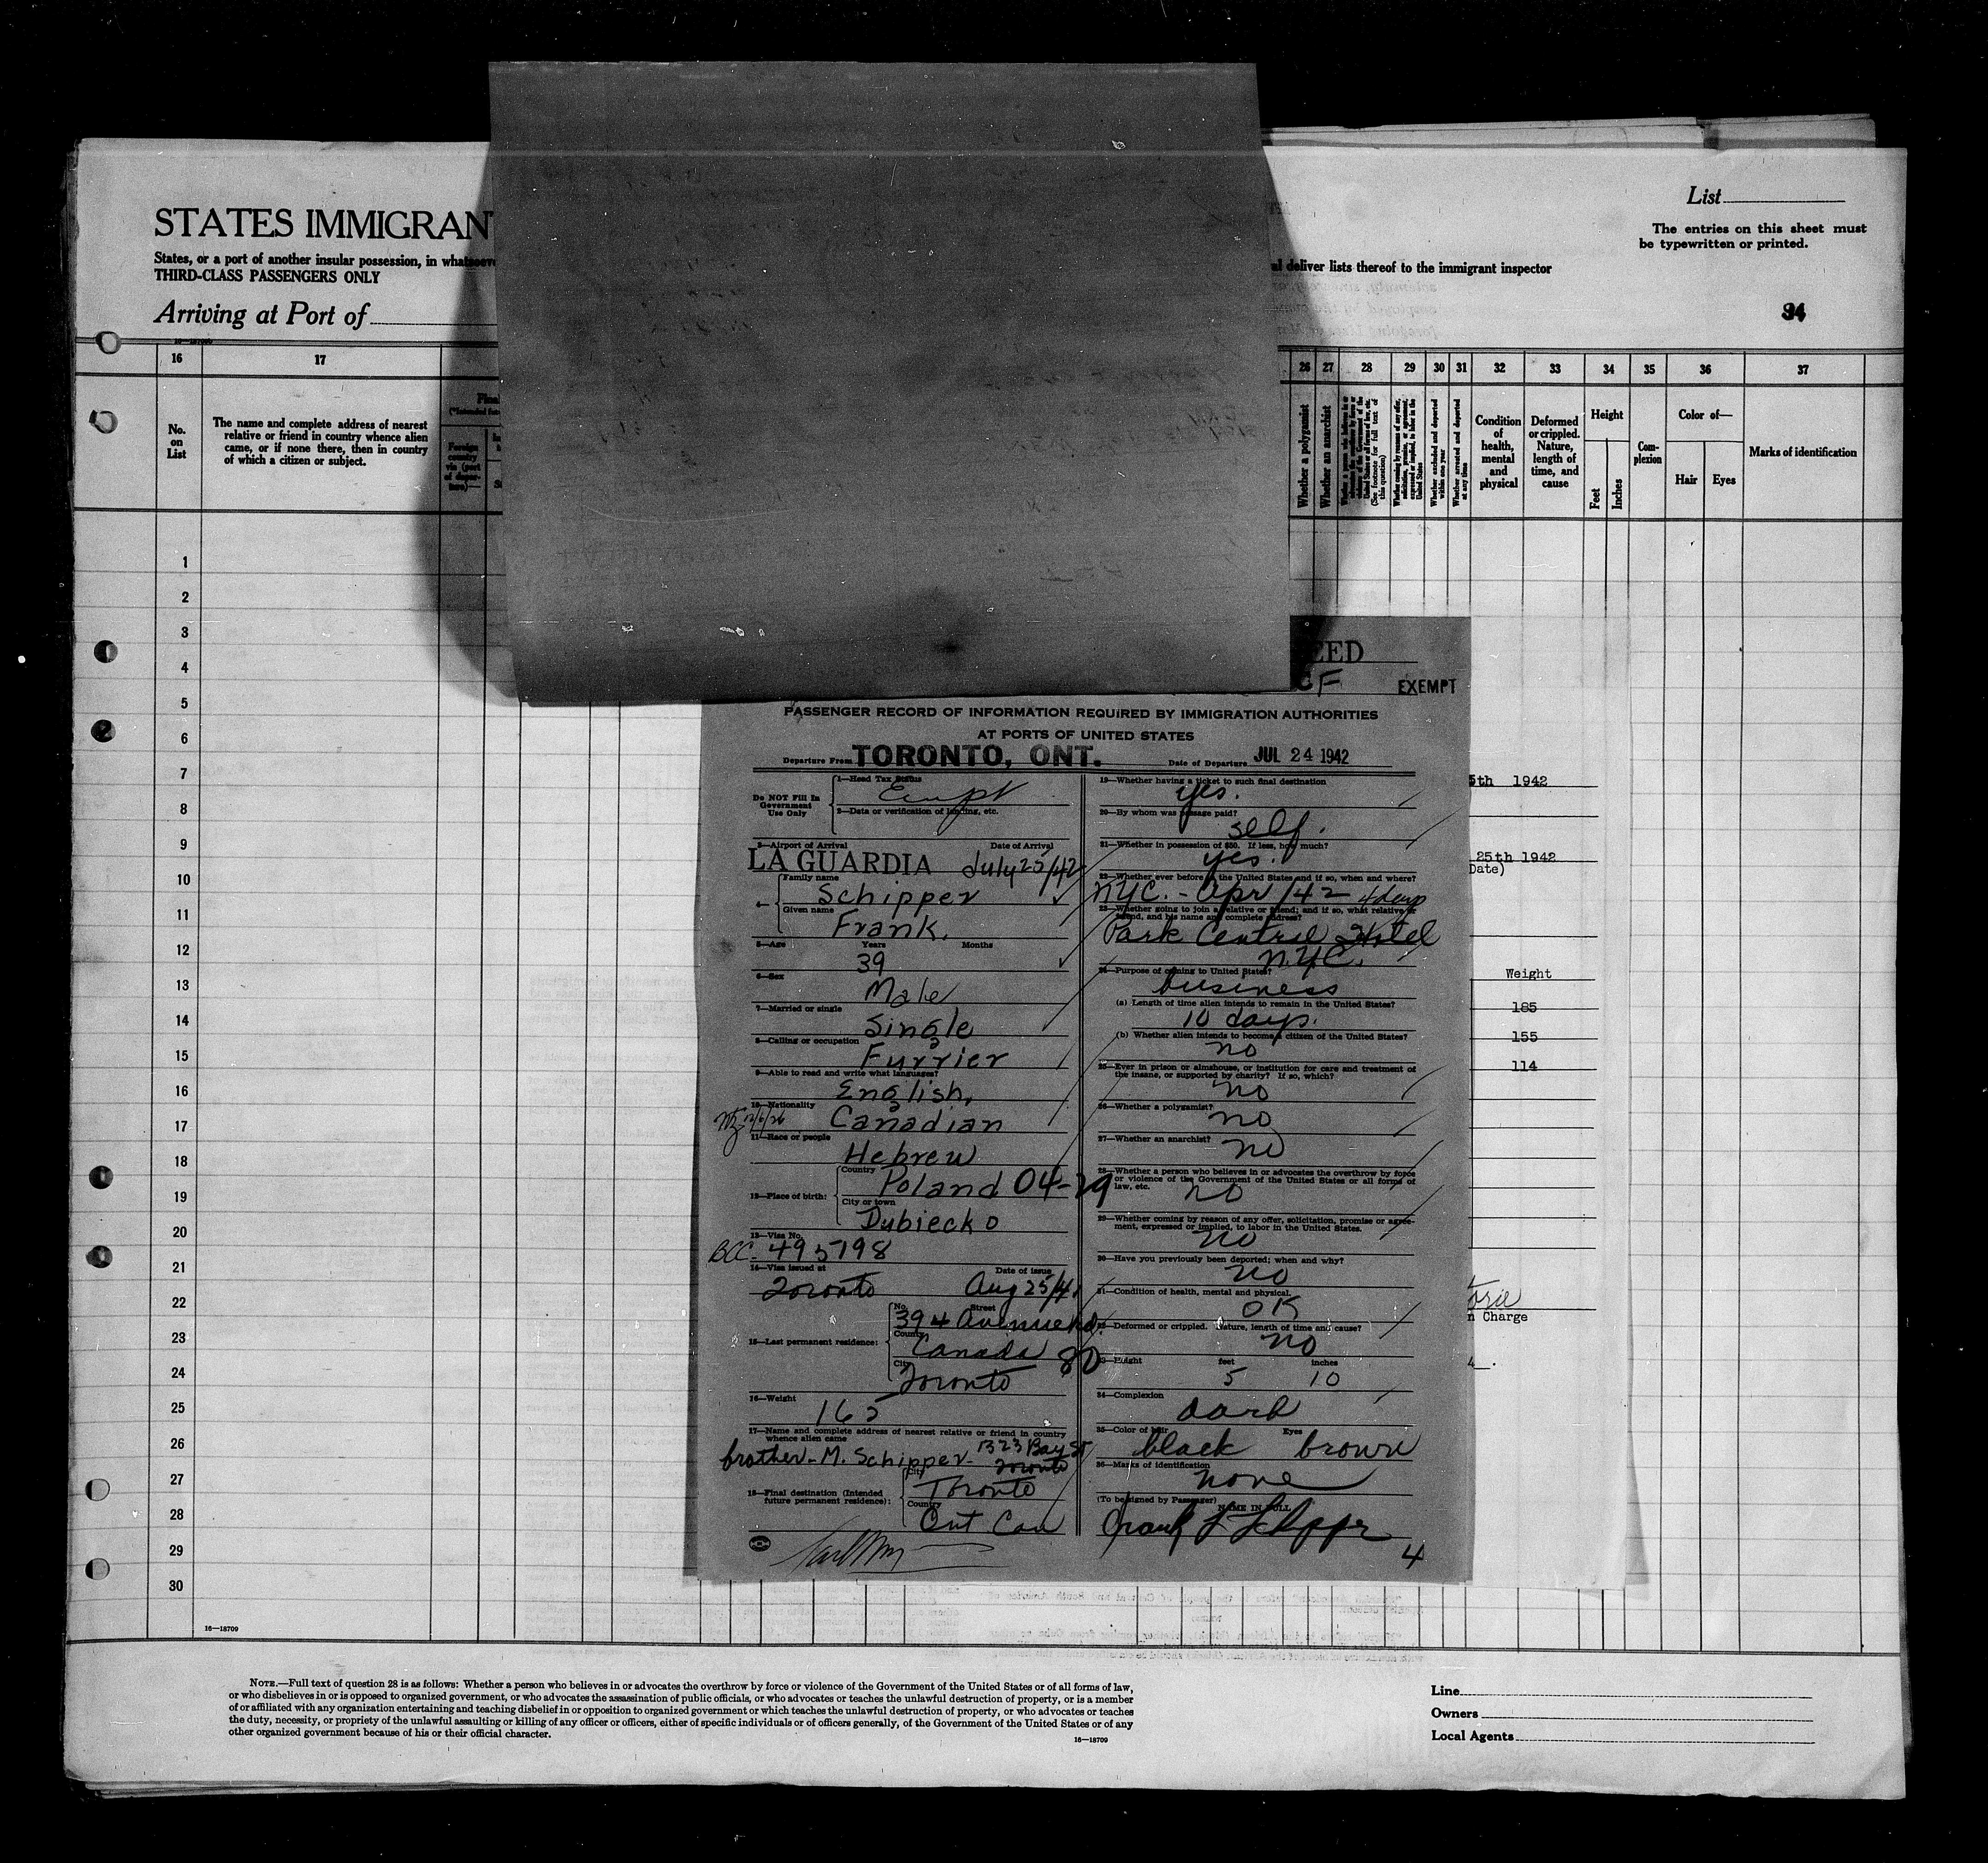 STATES IMMIGRAN
List
The entries on this sheet must
be typewritten or printed.
States, or a port of another insular possession, in whatsoever
al deliver lists thereof to the immigrant inspector
THIRD-CLASS PASSENGERS ONLY
Arriving at Port of
34
16 17 26 27 28 29 30 31 32 33 34 35 36 37
No.
on
List
The name and complete address of nearest
relative or friend in country whence alien
came, or if none there, then in country
of which a citizen or subject.
Foreign
country
via (port
of depar-
ture)—
Whether a polygamist
Whether an anarchist
(See footnote for full text of
this question)
Whether excluded and deported
within one year
Whether arrested and deported
at any time
Condition
of
health,
mental
and
physical
Deformed
or crippled.
Nature,
length of
time, and
cause
Height
Feet
Inches
Com-
plexion
Color of—
Hair
Eyes
Marks of identification
1
2
3
4
5
6
7
8
9
10
11
12
13
14
15
16
17
18
19
20
21
22
23
24
25
26
27
28
29
30
16—18709
ZED
CF
EXEMPT
PASSENGER RECORD OF INFORMATION REQUIRED BY IMMIGRATION AUTHORITIES
AT PORTS OF UNITED STATES
Departure From TORONTO, ONT. Date of Departure JUL 24 1942
Do NOT Fill In
Government
Use Only
1—Head Tax Status
Exmpt
2—Data or verification of landing, etc.
3—Airport of Arrival Date of Arrival
LA GUARDIA July 25/42
4—
Family name
Schipper
Given name
Frank.
5—Age Years Months
39
6—Sex
Male
7—Married or single
Single
8—Calling or occupation
Furrier
9—Able to read and write what languages?
English,
10—Nationality
Canadian
11—Race or people
Hebrew
12—Place of birth:
Country
Poland 04-29
City or town
Dubiecko
13—Visa No.
BCC. 495798
14—Visa issued at Date of issue
Toronto Aug 25/41
15—Last permanent residence:
No. Street
394 Avenue Rd.
Country
Canada 80
City
Toronto
16—Weight
165
17—Name and complete address of nearest relative or friend in country
whence alien came
brother - M. Schipper - 1323 Bay St
Toronto
18—Final destination (Intended
future permanent residence):
City
Toronto
Country
Ont Can
19—Whether having a ticket to such final destination
yes.
20—By whom was passage paid?
self.
21—Whether in possession of $50. If less, how much?
yes.
22—Whether ever before in the United States and if so, when and where?
NYC. - Apr/42 4 days
23—Whether going to join a relative or friend; and if so, what relative or
friend, and his name and complete address?
Park Central Hotel
N.Y.C.
24—Purpose of coming to United States?
business
(a) Length of time alien intends to remain in the United States?
10 days.
(b) Whether alien intends to become a citizen of the United States?
no
25—Ever in prison or almshouse, or institution for care and treatment of
the insane, or supported by charity? If so, which?
no
26—Whether a polygamist?
no
27—Whether an anarchist?
no
28—Whether a person who believes in or advocates the overthrow by force
or violence of the Government of the United States or all forms of
law, etc.
no
29—Whether coming by reason of any offer, solicitation, promise or agree-
ment, expressed or implied, to labor in the United States.
no
30—Have you previously been deported; when and why?
no
31—Condition of health, mental and physical.
OK
32—Deformed or crippled. Nature, length of time and cause?
no
33—Height feet inches
5 10
34—Complexion
dark
35—Color of hair Eyes
black brown
36—Marks of identification
none
(To be signed by Passenger) NAME IN FULL
Frank Schipper
4
5th 1942
25th 1942
Date)
Weight
185
155
114
n Charge
NOTE.—Full text of question 28 is as follows: Whether a person who believes in or advocates the overthrow by force or violence of the Government of the United States or of all forms of law,
or who disbelieves in or is opposed to organized government, or who advocates the assassination of public officials, or who advocates or teaches the unlawful destruction of property, or is a member
of or affiliated with any organization entertaining and teaching disbelief in or opposition to organized government or which teaches the unlawful destruction of property, or who advocates or teaches
the duty, necessity, or propriety of the unlawful assaulting or killing of any officer or officers, either of specific individuals or of officers generally, of the Government of the United States or of any
other organized government because of his or their official character.
16—18709
Line
Owners
Local Agents